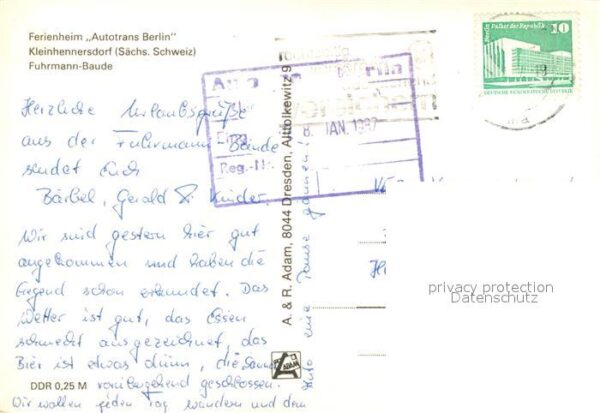 Ferienheim „Autotrans Berlin"
Kleinhennersdorf (Sächs. Schweiz)
Fuhrmann-Baude
Herzliche Urlaubsgrüße
aus der Fuhrmann-Baude
sendet Euch
Bärbel, Gerald & Kinder.
Wir sind gestern hier gut
angekommen und haben die
Gegend schon erkundet. Das
Wetter ist gut, das Essen
schmeckt ausgezeichnet, das
Bier ist etwas dünn, die Sauna
vorübergehend geschlossen.
Wir wollen jeden Tag wandern und dem
Auto eine Pause gönnen!
DDR 0,25 M
A. & R. Adam, 8044 Dresden, Alttolkewitz 9
ADAM
Auto rlin
8. JAN. 1987
Reg.-Nr.
versichern
Berlin Palast der Republik
10
DEUTSCHE DEMOKRATISCHE REPUBLIK
privacy protection
Datenschutz